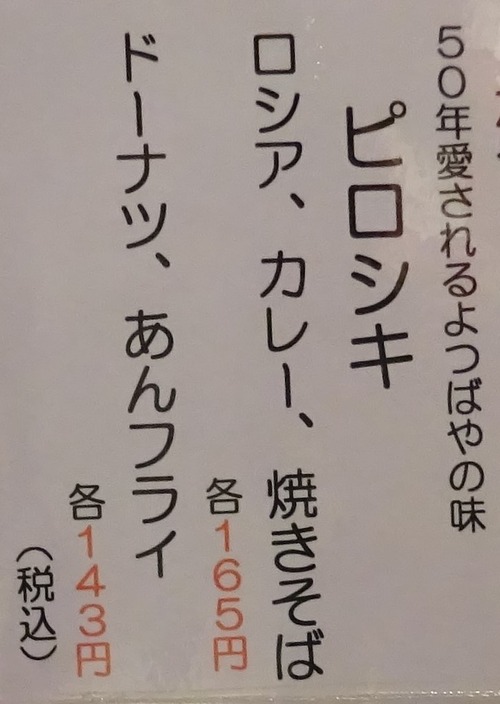 50年愛されるよつばやの味
ピロシキ
ロシア、カレー、焼きそば
各165円
ドーナツ、あんフライ
各143円
（税込）